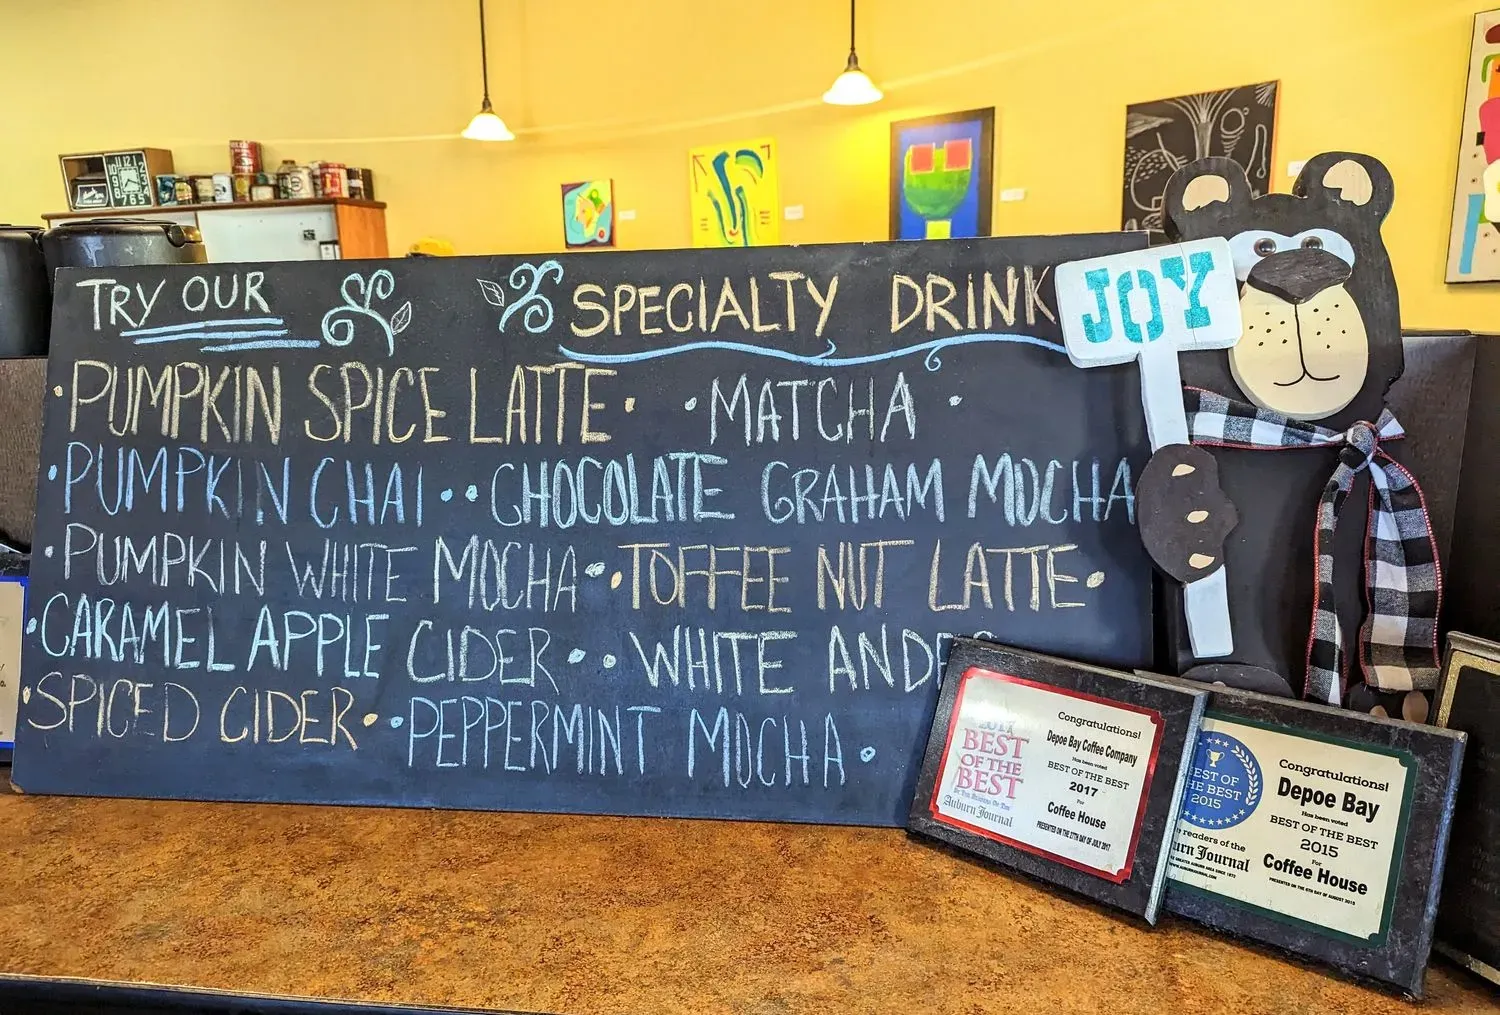 TRY OUR SPECIALTY DRINK
• PUMPKIN SPICE LATTE • • MATCHA •
• PUMPKIN CHAI • • CHOCOLATE GRAHAM MOCHA
• PUMPKIN WHITE MOCHA • • TOFFEE NUT LATTE •
• CARAMEL APPLE CIDER • • WHITE ANDE
• SPICED CIDER • • PEPPERMINT MOCHA •
JOY
2017
BEST
OF THE
BEST
Auburn Journal
Congratulations!
Depoe Bay Coffee Company
Has been voted
BEST OF THE BEST
2017
For
Coffee House
PRESENTED ON THE 27TH DAY OF JULY 2017
EST OF
HE BEST
2015
e readers of the
urn Journal
Congratulations!
Depoe Bay
Has been voted
BEST OF THE BEST
2015
For
Coffee House
PRESENTED ON THE 6TH DAY OF AUGUST 2015
11 12 1
10 2
9 3
8 4
7 6 5